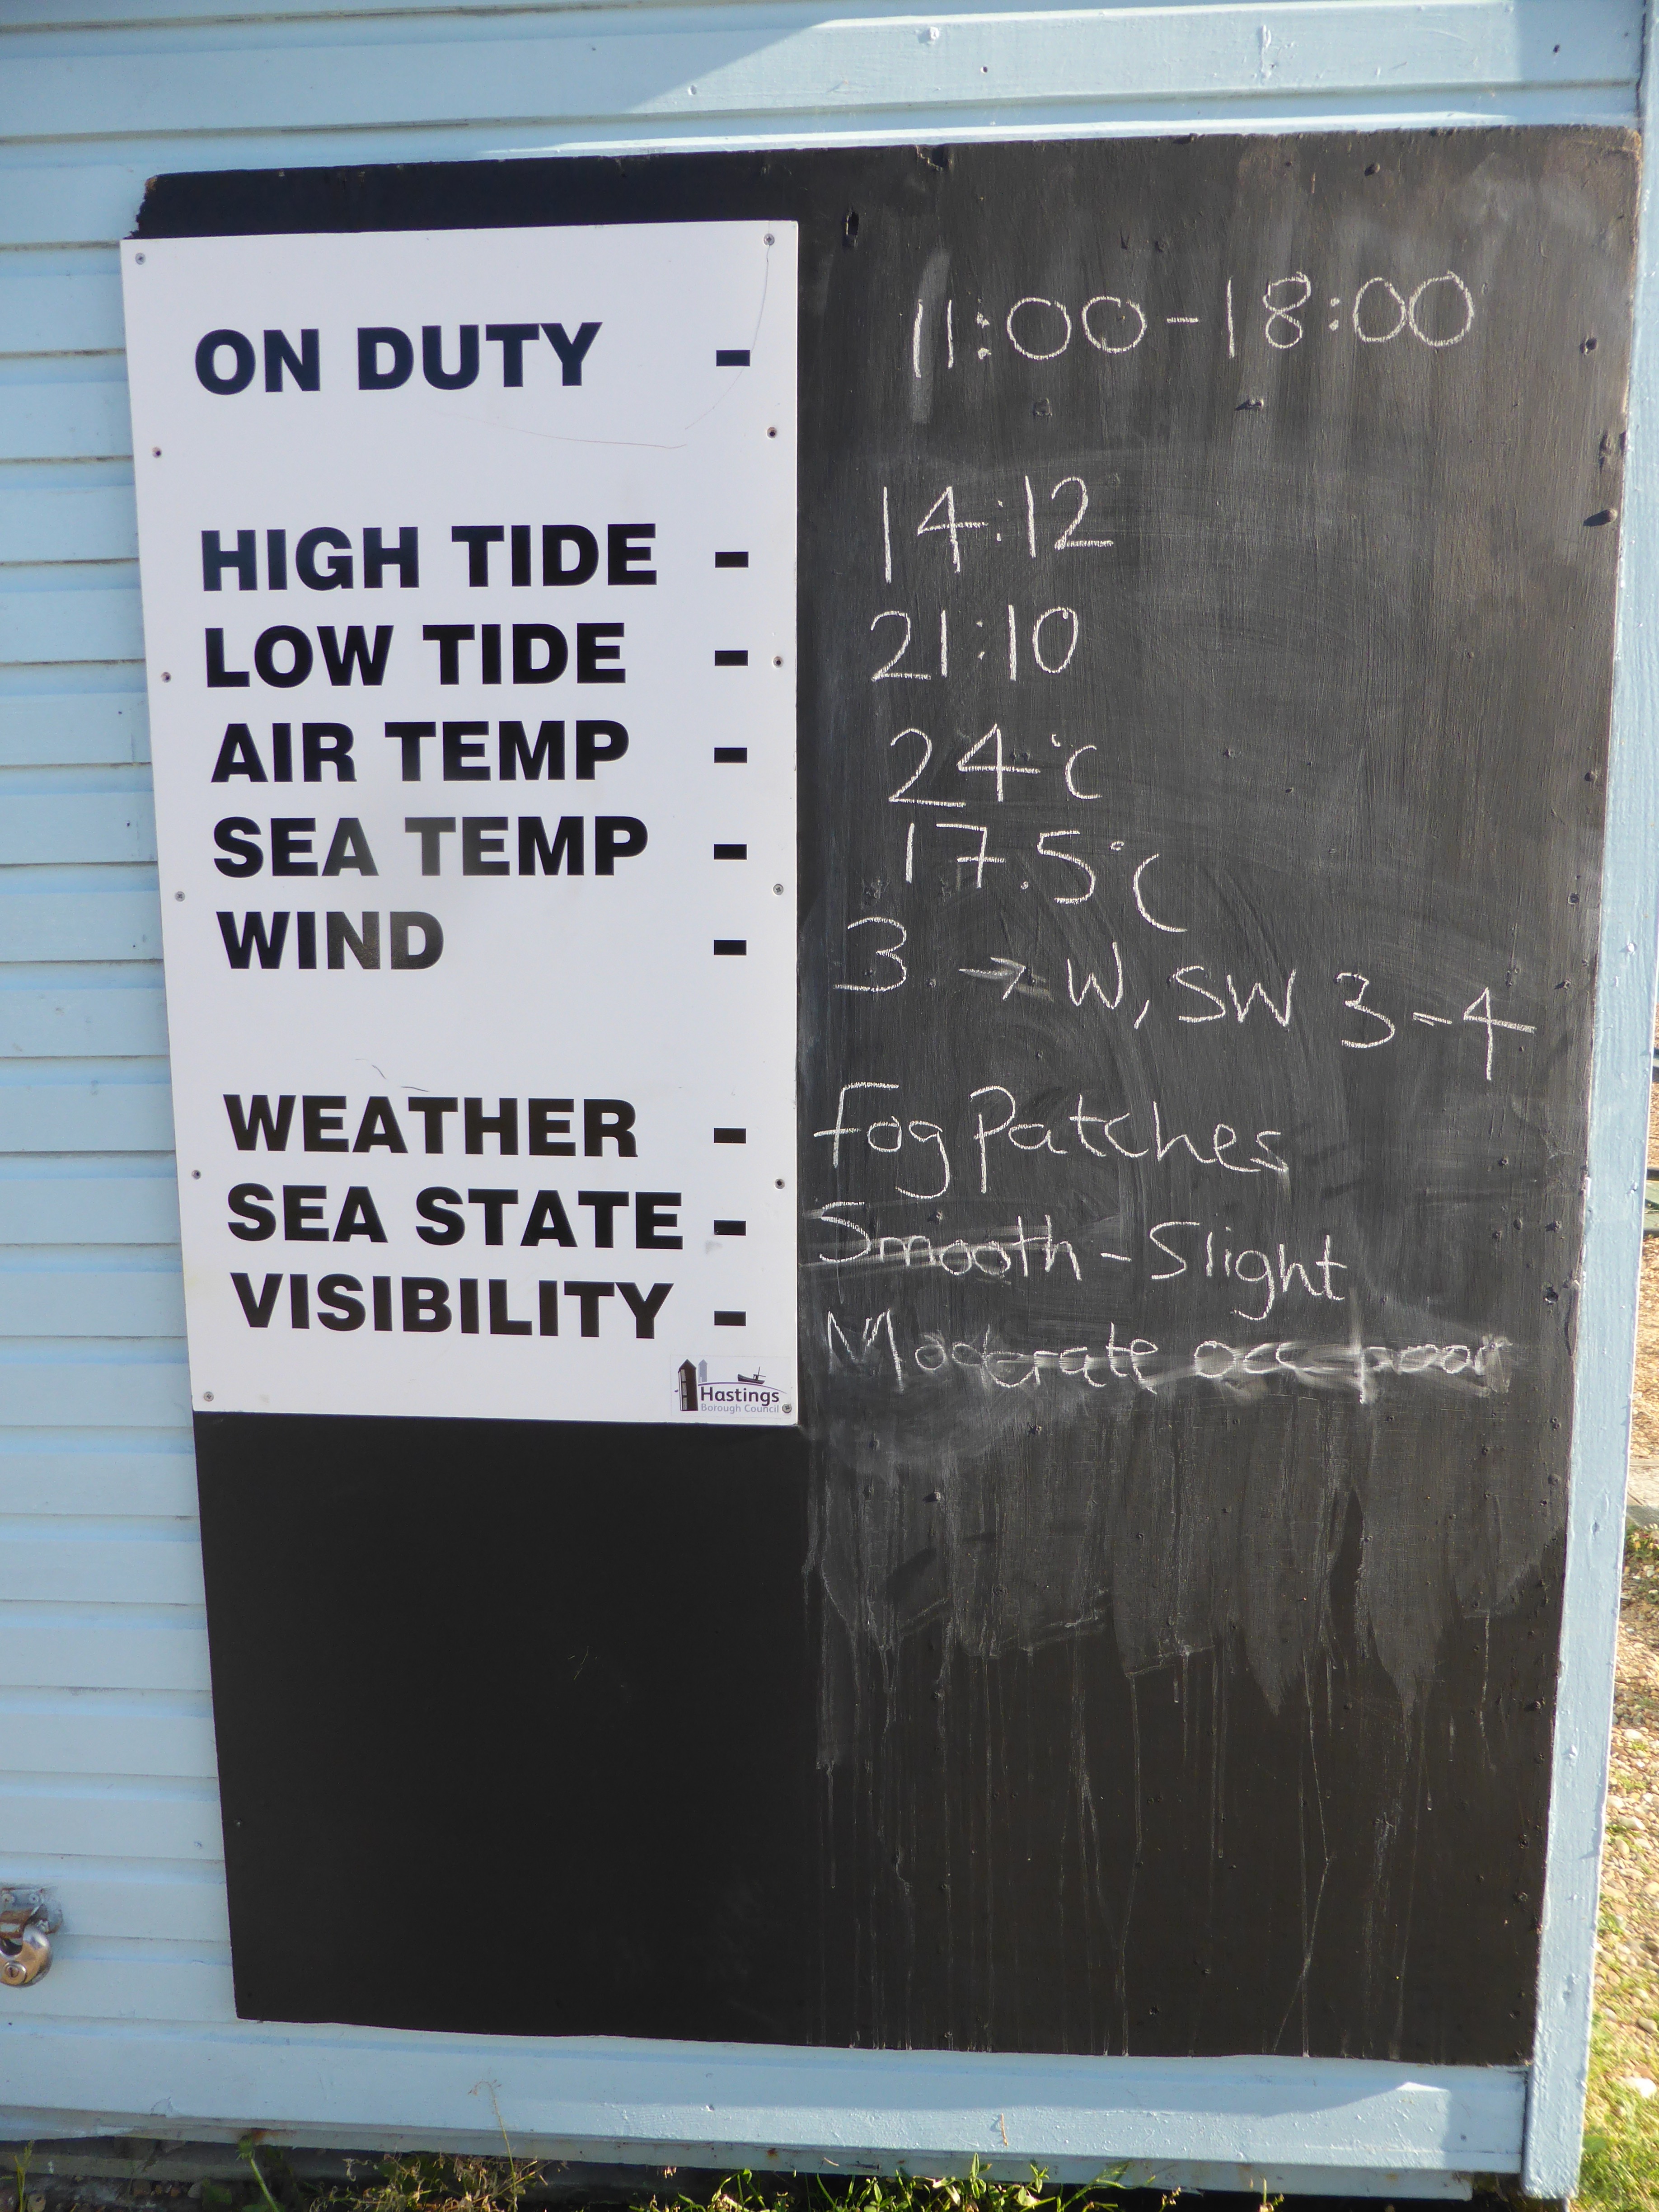 ON DUTY - 11:00-18:00
HIGH TIDE - 14:12
LOW TIDE - 21:10
AIR TEMP - 24°C
SEA TEMP - 17.5°C
WIND - 3 → W, SW 3-4
WEATHER - Fog Patches
SEA STATE - Smooth - Slight
VISIBILITY - Moderate occ poor
Hastings
Borough Council